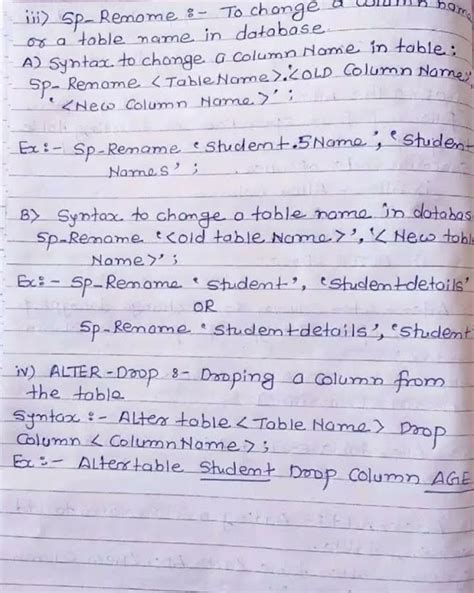 iii) Sp_Rename :- To change a column name
or a table name in database
A) Syntax to change a column Name in table:
Sp_Rename <Table Name>.<OLD Column Name>,
'<New Column Name>';
Ex:- Sp-Rename 'Student.SName', 'Student
Names';
B) Syntax to change a table name in databas
Sp-Rename '<old table Name>', '<New tabl
Name>';
Ex:- Sp-Rename 'student', 'Studentdetails'
OR
Sp-Rename 'studentdetails', 'Student
iv) ALTER-Drop :- Droping a column from
the table
Syntax :- Alter table <Table Name> Drop
Column <Column Name>;
Ex:- Alter table Student Drop Column AGE